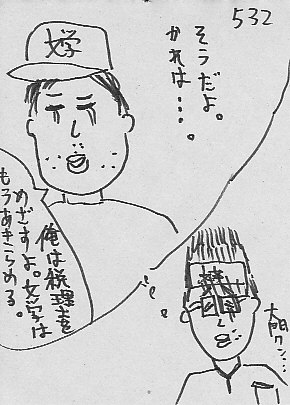 532
文学
そうだよ。
かれは…。
俺は税理士を
めざすよ。文学は
もうあきらめる。
大門クン…